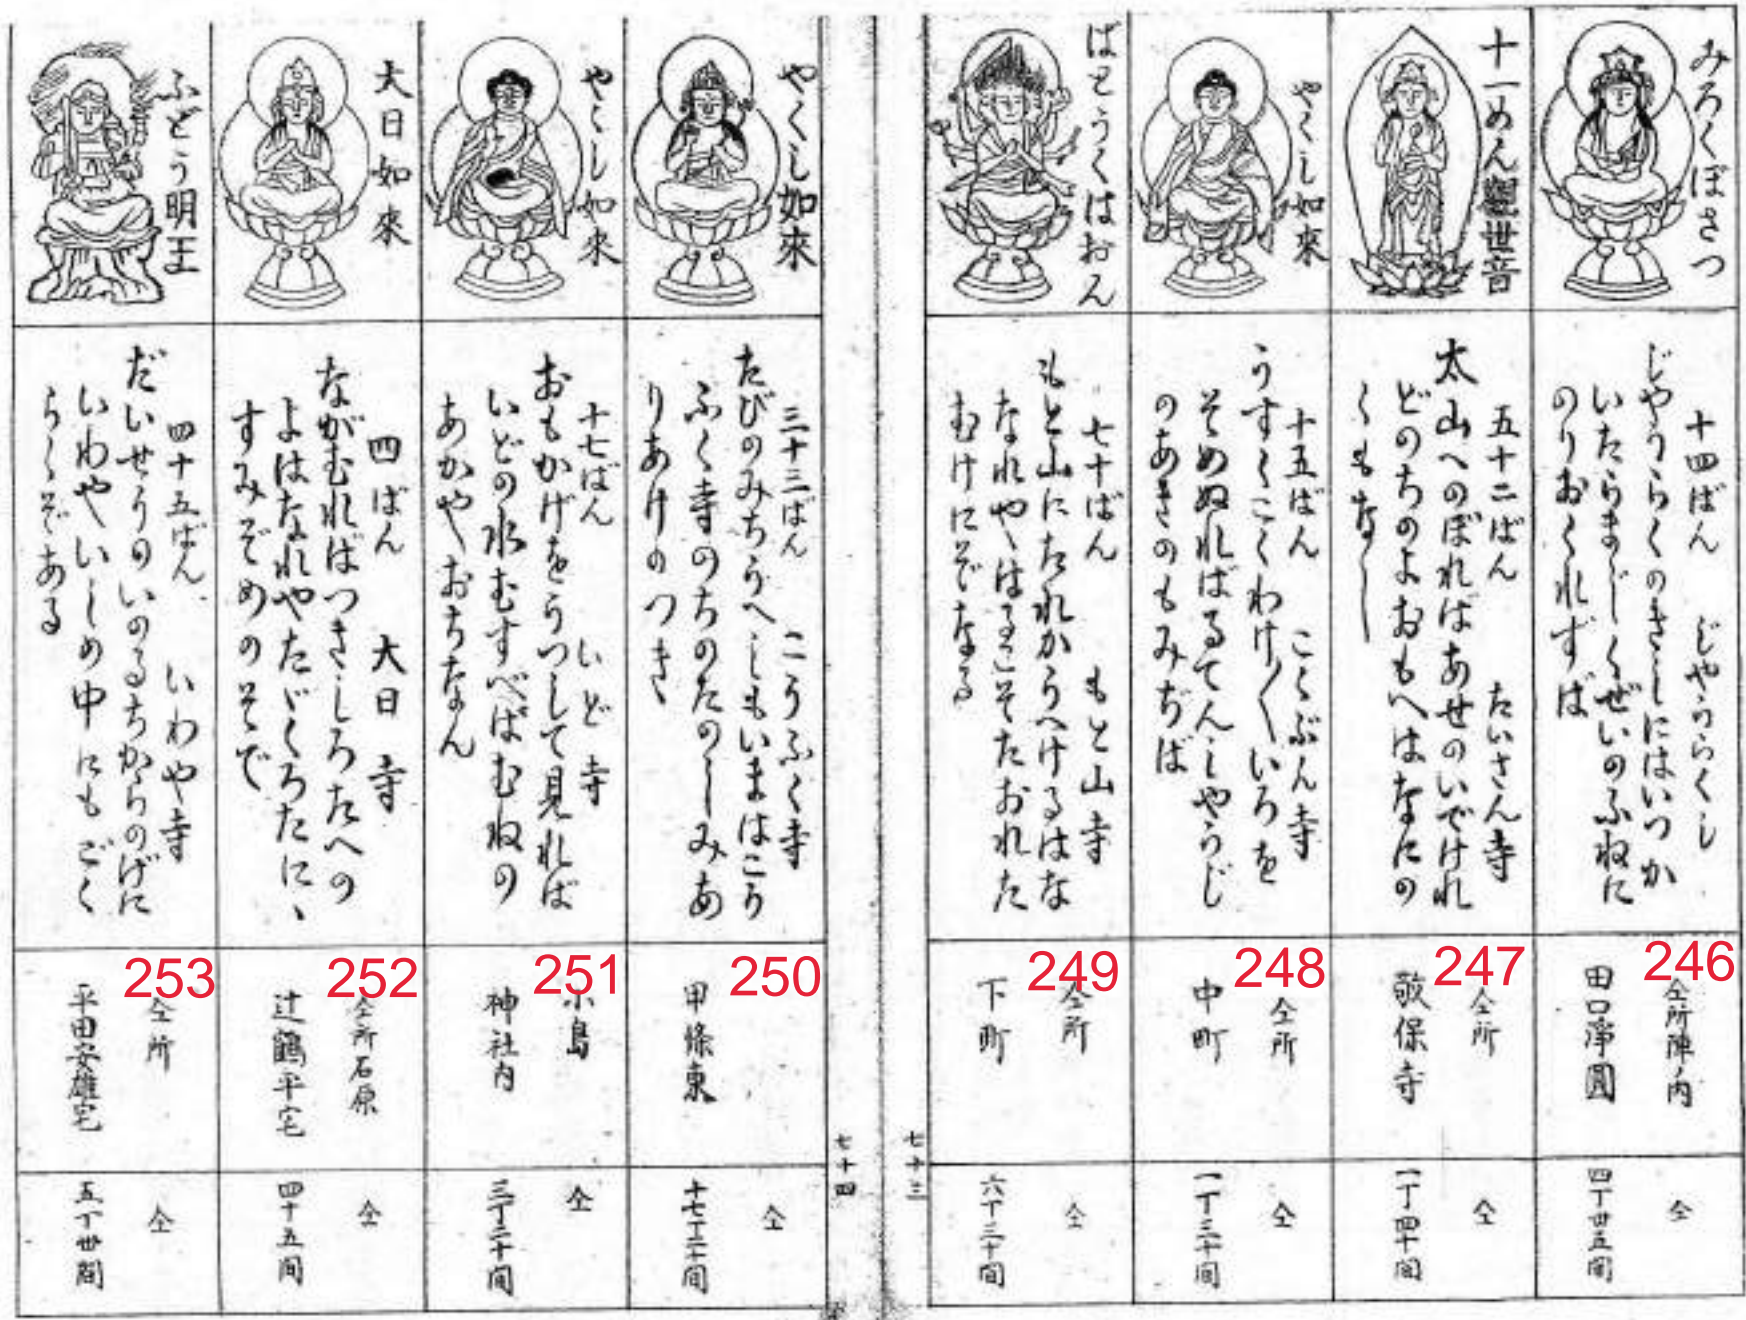 みろくぼさつ
十四ばん　じやうらくじ
じやうらくのきしにはいつか
いたらまじくぜいのふねに
のりおくれずば
246
仝所陣内
田口淨圓
仝
四丁卅五間
十一めん觀世音
五十二ばん　たいさん寺
太山へのぼればあせのいでけれ
どのちのよおもへはなにの
くもなし
247
仝所
敬保寺
仝
一丁四十間
やくし如來
十五ばん　こくぶん寺
うすくこくわけ〱いろを
そめぬればるてんしやうじ
のあきのもみぢば
248
仝所
中町
仝
一丁三十間
ばとうくはおん
七十ばん　もと山寺
もと山にたれかうへけるはな
なれや
むけにぞなる
249
仝所
下町
仝
六丁三十間
七十三
七十四
やくし如來
三十三ばん　こうふく寺
たびのみちうへしもいまはこう
ふく寺のちのたのしみあ
りあけのつき
250
甲條東
仝
やくし如來
十七ばん　いど寺
おもかげをうつして見れば
いどの水むすべばむねの
あかやおちなん
251
小島
神社内
仝
三丁二十間
大日如來
四ばん　大日寺
ながむればつきしろたへの
よはなれやたゞくろたに、
すみぞめのそで
252
仝所石原
辻鶴平宅
仝
四十五間
ふどう明王
四十五ばん　いわや寺
だいせうのいのるちからのげに
いわやいしの中にもごく
らくぞある
253
仝所
平田安雄宅
仝
五丁卅間